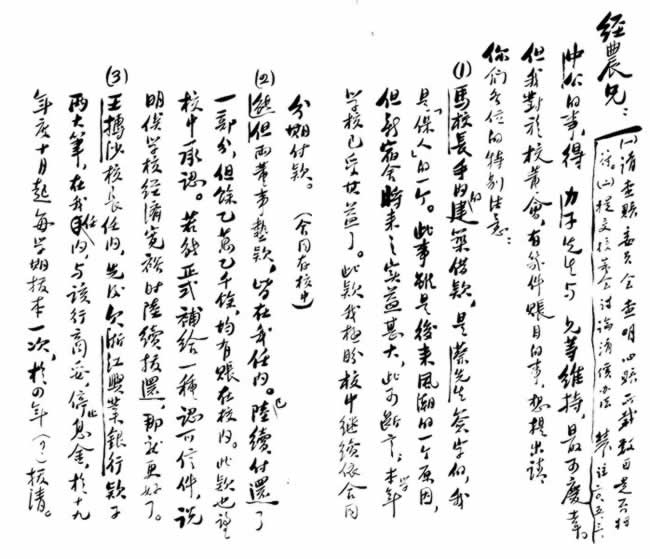 經農兄：
(一)請查賬委員會查明此賬所載數目是否相
符，(二)提交校董會討論清償辦法
仲公的事，得力子先生與兄等維持，最可慶幸。
但我對於校董會，有幾件賬目的事，想提出請
你們各位的特別注意：
(1)馬校長手內的建築借款，是蔡先生簽字的，我
是「保人」的一个。此事雖是後來風潮的一个原因，
但新宿舍時來之實益甚大，此可斷言。本年學
學校已受其益了。此款我極盼校中繼續依合同
分期付款。（合同存校中）
(2)但兩董事墊款，皆在我任內。已陸續付還了
一部分，但餘乙萬乙千餘，均有賬在校內。此款也望
校中承認。若能正式補給一種認可信件，說
明俟學校經濟寬裕時陸續撥還，那就更好了。
(3)王摶沙校長任內，先後欠浙江興業銀行款子
兩大筆，在我任內，與該行商妥，停止息金，於十九
年度十月起每學期撥本一次，於四年（？）撥清。